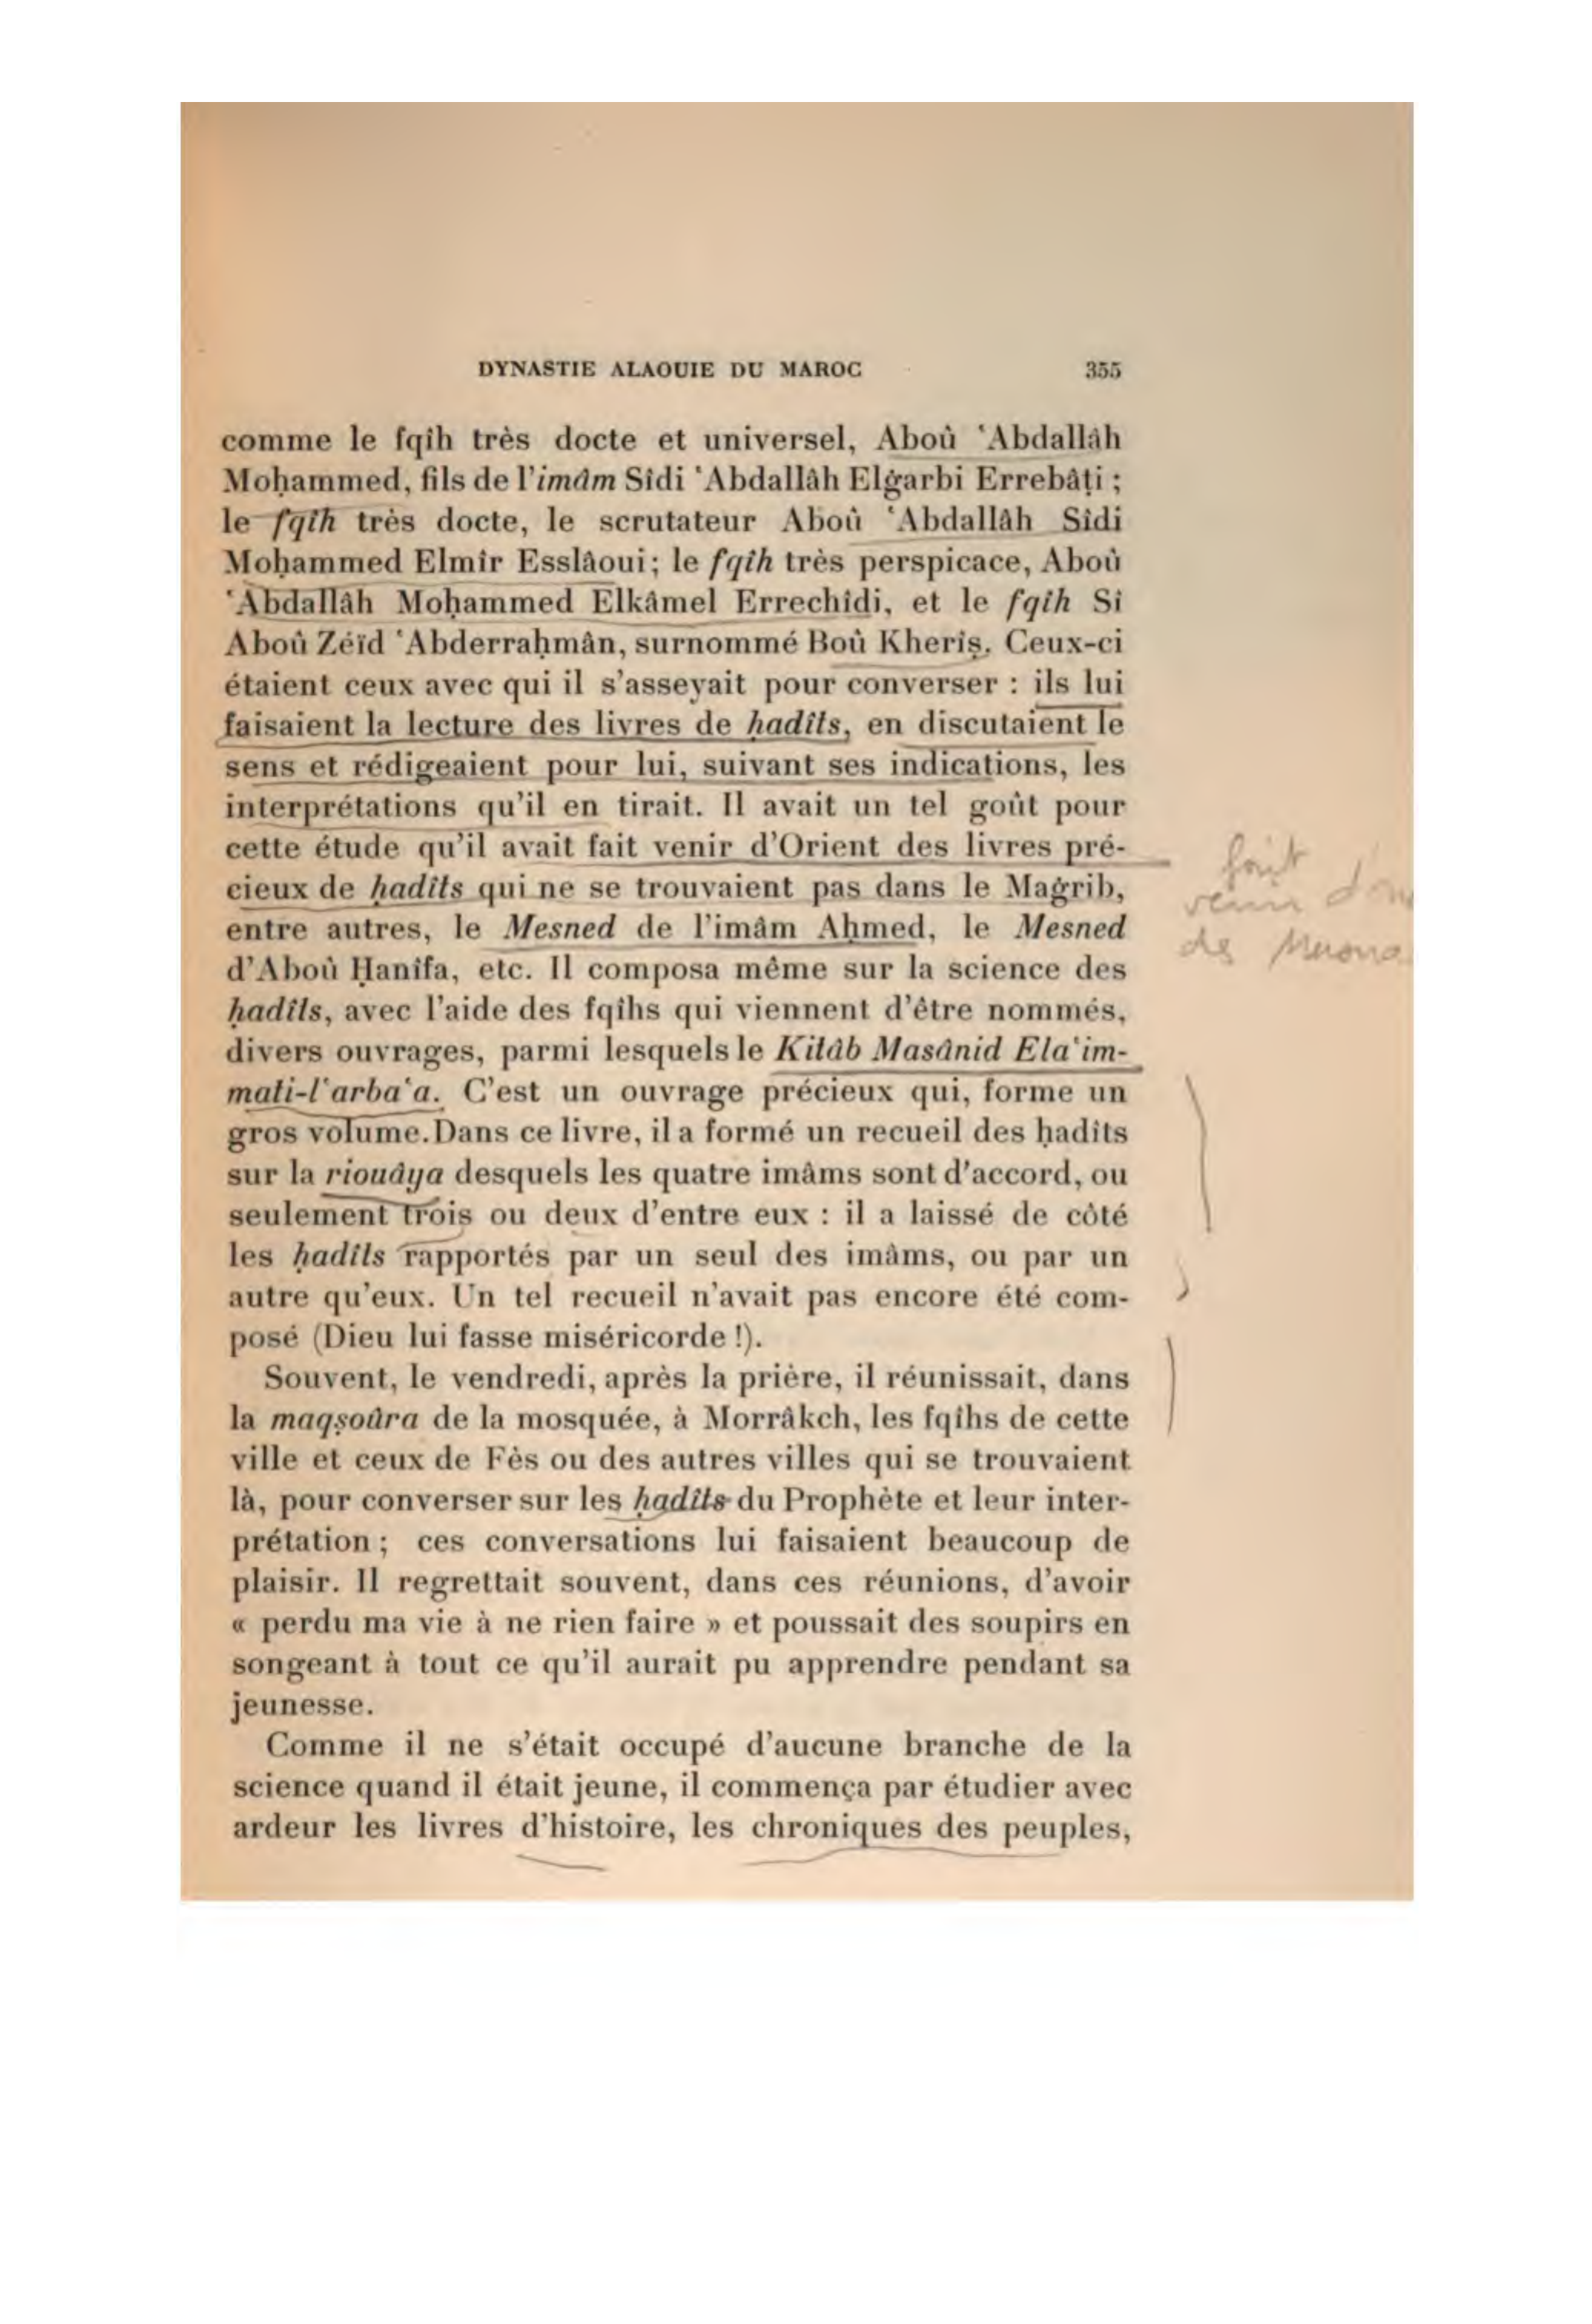 DYNASTIE ALAOUIE DU MAROC 355
comme le fqîh très docte et universel, Aboû ʽAbdallâh
Moḥammed, fils de l'imâm Sîdi ʽAbdallâh Elġarbi Errebâṭi ;
le fqîh très docte, le scrutateur Aboû ʽAbdallâh Sîdi
Moḥammed Elmîr Esslâoui; le fqîh très perspicace, Aboû
ʽAbdallâh Moḥammed Elkâmel Errechîdi, et le fqîh Si
Aboû Zéïd ʽAbderraḥmân, surnommé Boû Kherîṣ. Ceux-ci
étaient ceux avec qui il s'asseyait pour converser : ils lui
faisaient la lecture des livres de ḥadîts, en discutaient le
sens et rédigeaient pour lui, suivant ses indications, les
interprétations qu'il en tirait. Il avait un tel goût pour
cette étude qu'il avait fait venir d'Orient des livres pré-
cieux de ḥadîts qui ne se trouvaient pas dans le Maġrib,
entre autres, le Mesned de l'imâm Aḥmed, le Mesned
d'Aboû Ḥanîfa, etc. Il composa même sur la science des
ḥadîts, avec l'aide des fqîhs qui viennent d'être nommés,
divers ouvrages, parmi lesquels le Kitâb Masânid Elaʽim-
mati-lʽarbaʽa. C'est un ouvrage précieux qui, forme un
gros volume. Dans ce livre, il a formé un recueil des ḥadîts
sur la riouâya desquels les quatre imâms sont d'accord, ou
seulement trois ou deux d'entre eux : il a laissé de côté
les ḥadîts rapportés par un seul des imâms, ou par un
autre qu'eux. Un tel recueil n'avait pas encore été com-
posé (Dieu lui fasse miséricorde !).
Souvent, le vendredi, après la prière, il réunissait, dans
la maqṣoûra de la mosquée, à Morrâkch, les fqîhs de cette
ville et ceux de Fès ou des autres villes qui se trouvaient
là, pour converser sur les ḥadîts du Prophète et leur inter-
prétation ; ces conversations lui faisaient beaucoup de
plaisir. Il regrettait souvent, dans ces réunions, d'avoir
« perdu ma vie à ne rien faire » et poussait des soupirs en
songeant à tout ce qu'il aurait pu apprendre pendant sa
jeunesse.
Comme il ne s'était occupé d'aucune branche de la
science quand il était jeune, il commença par étudier avec
ardeur les livres d'histoire, les chroniques des peuples,
fait
venir
des